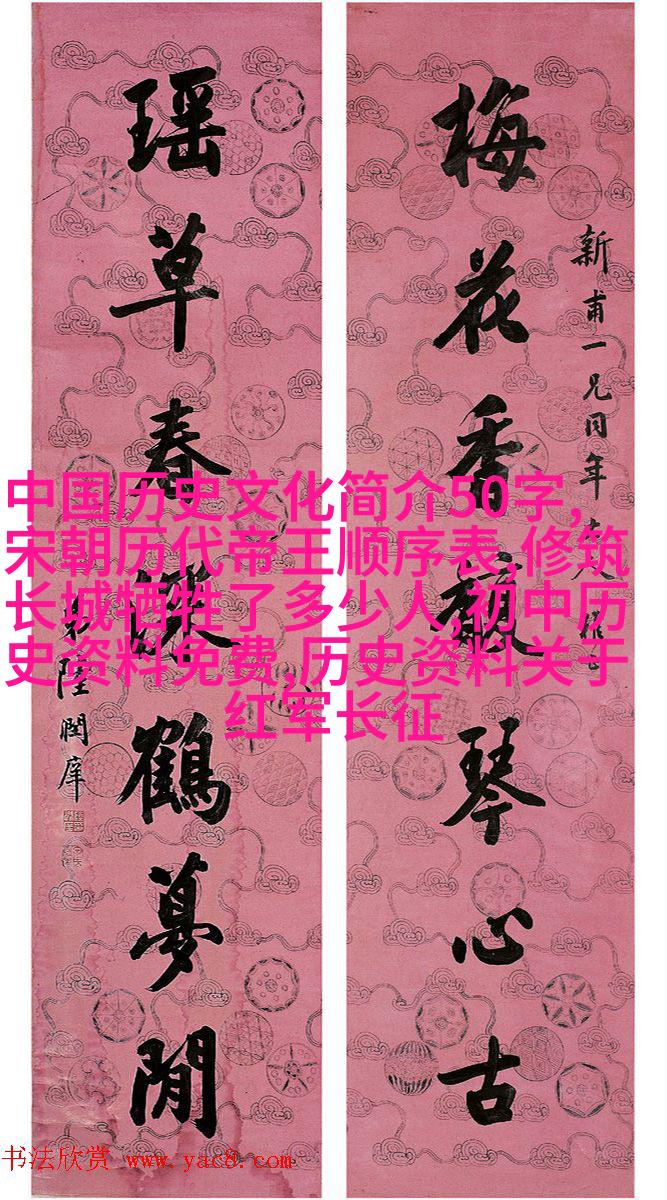 新甫一兄同年
梅花香琴心古
瑶草春鶴夢閒
陸潤庠
中国历史文化简介50字,
宋朝历代帝王顺序表,修筑
长城牺牲了多少人,初中历
史资料免费,历史资料关于
红军长征
书法欣赏 www.yac8.com